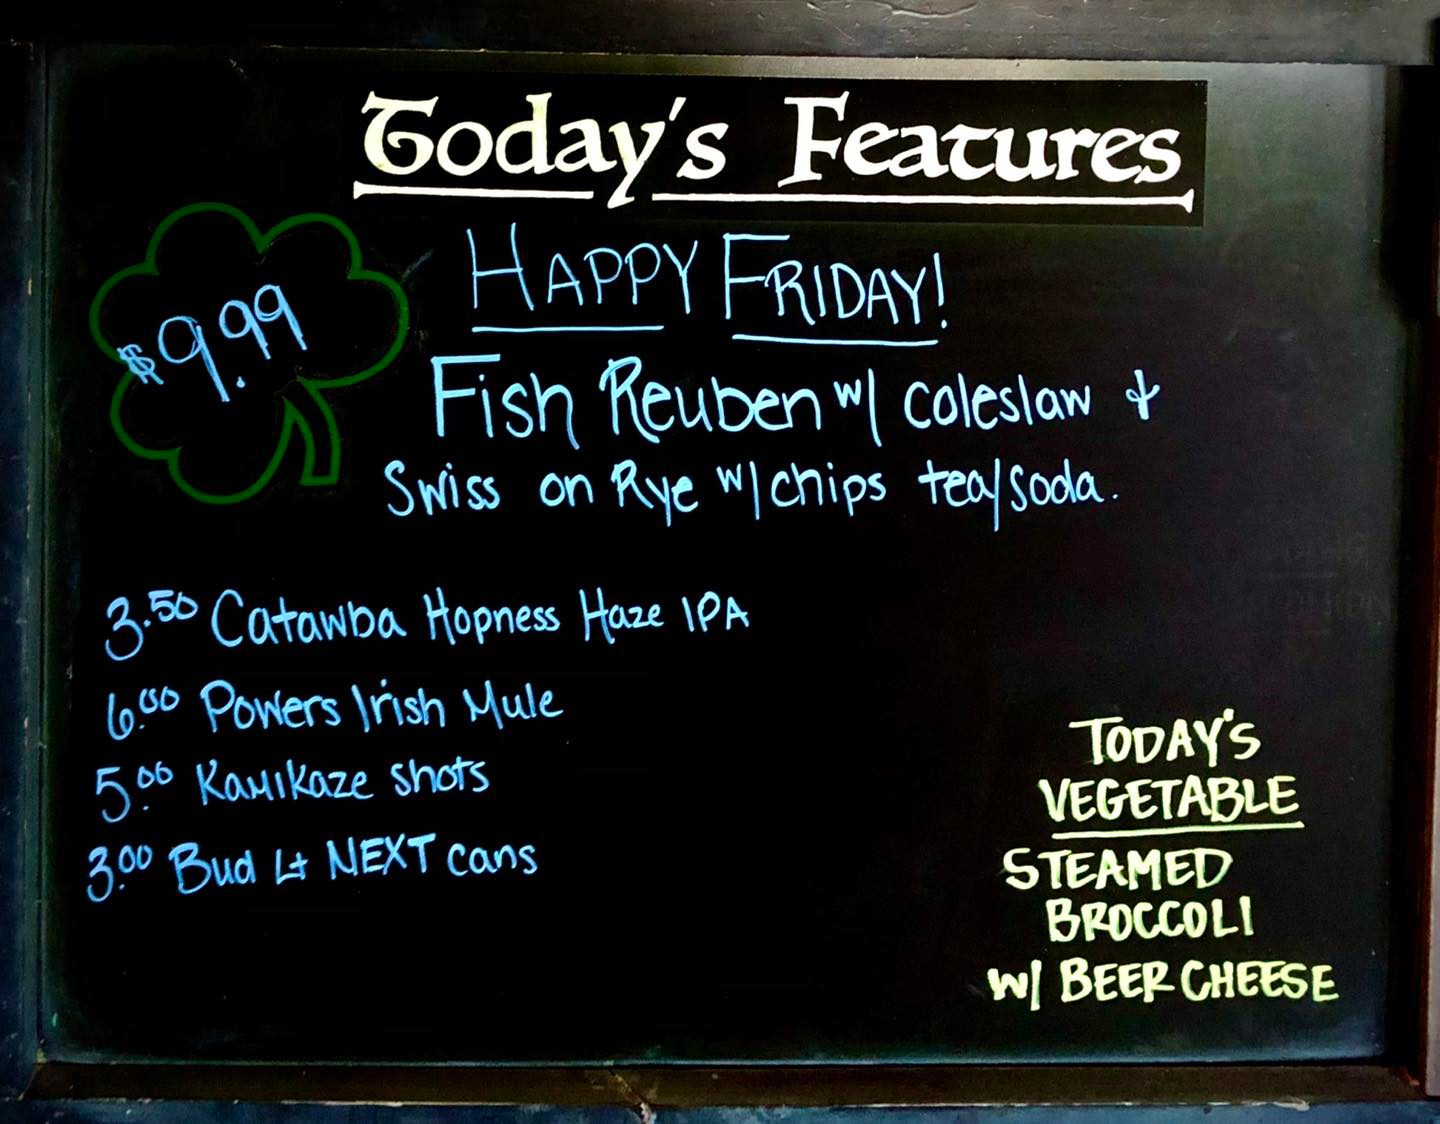 Today's Features
HAPPY FRIDAY!
$9.99
Fish Reuben w/ coleslaw &
Swiss on Rye w/chips tea/soda.
3.50 Catawba Hopness Haze IPA
6.00 Powers Irish Mule
5.00 Kamikaze shots
3.00 Bud Lt NEXT cans
TODAY'S
VEGETABLE
STEAMED
BROCCOLI
w/ BEER CHEESE